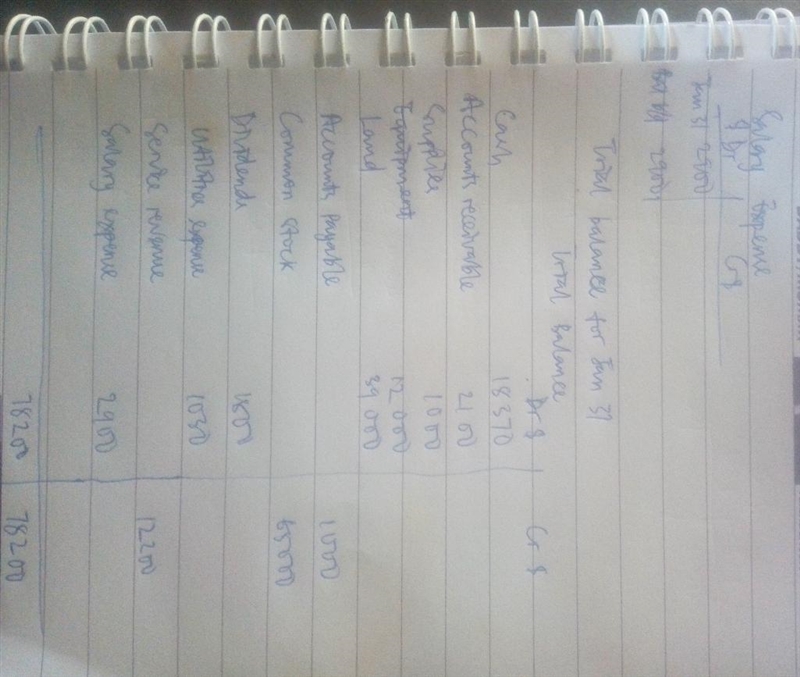 Salary Expense
$ Dr Cr $
Jan 31 2900
2900
Trial balance for Jan 31
Trial Balance
Dr $ Cr $
Cash 18370
Accounts receivable 2100
Supplies 1000
Equipment 12000
Land 39000
Accounts Payable 1000
Common stock 65000
Dividends 1800
Utilities expense 1030
Service revenue 12200
Salary expense 2900
78200 78200